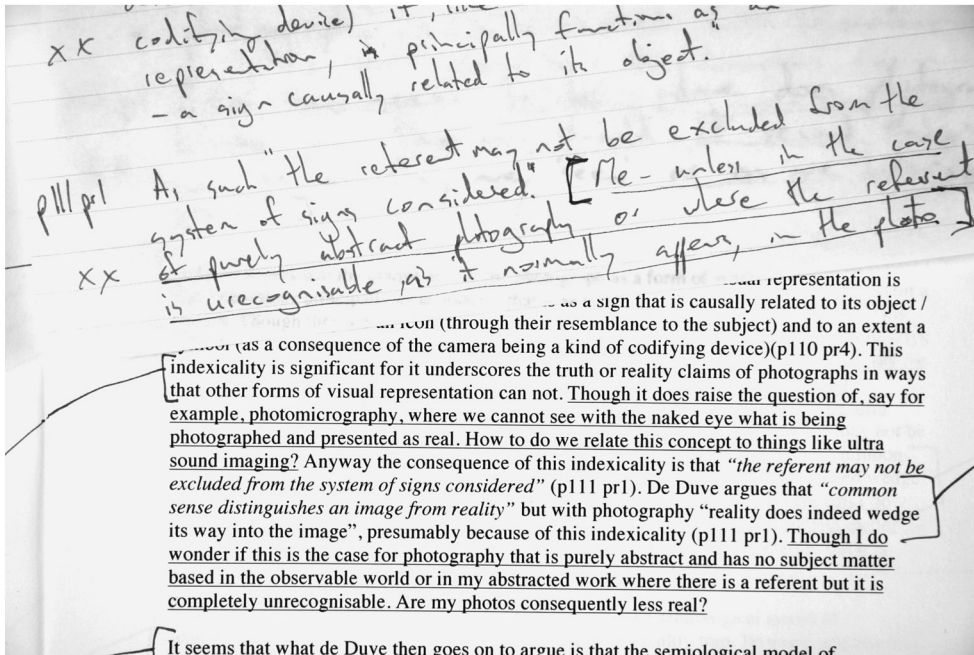 xx codifying device) it, like
representation, is principally functions as an
- a sign causally related to its object."
p111 pr1 As such "the referent may not be excluded from the
system of signs considered." [Me - unless in the case
xx of purely abstract photography or where the referent
is urecognisable, as it normally appears, in the photo]
representation is
as a sign that is causally related to its object /
icon (through their resemblance to the subject) and to an extent a
(as a consequence of the camera being a kind of codifying device)(p110 pr4). This
indexicality is significant for it underscores the truth or reality claims of photographs in ways
that other forms of visual representation can not. Though it does raise the question of, say for
example, photomicrography, where we cannot see with the naked eye what is being
photographed and presented as real. How to do we relate this concept to things like ultra
sound imaging? Anyway the consequence of this indexicality is that “the referent may not be
excluded from the system of signs considered” (p111 pr1). De Duve argues that “common
sense distinguishes an image from reality” but with photography “reality does indeed wedge
its way into the image”, presumably because of this indexicality (p111 pr1). Though I do
wonder if this is the case for photography that is purely abstract and has no subject matter
based in the observable world or in my abstracted work where there is a referent but it is
completely unrecognisable. Are my photos consequently less real?
It seems that what de Duve then goes on to argue is that the semiological model of